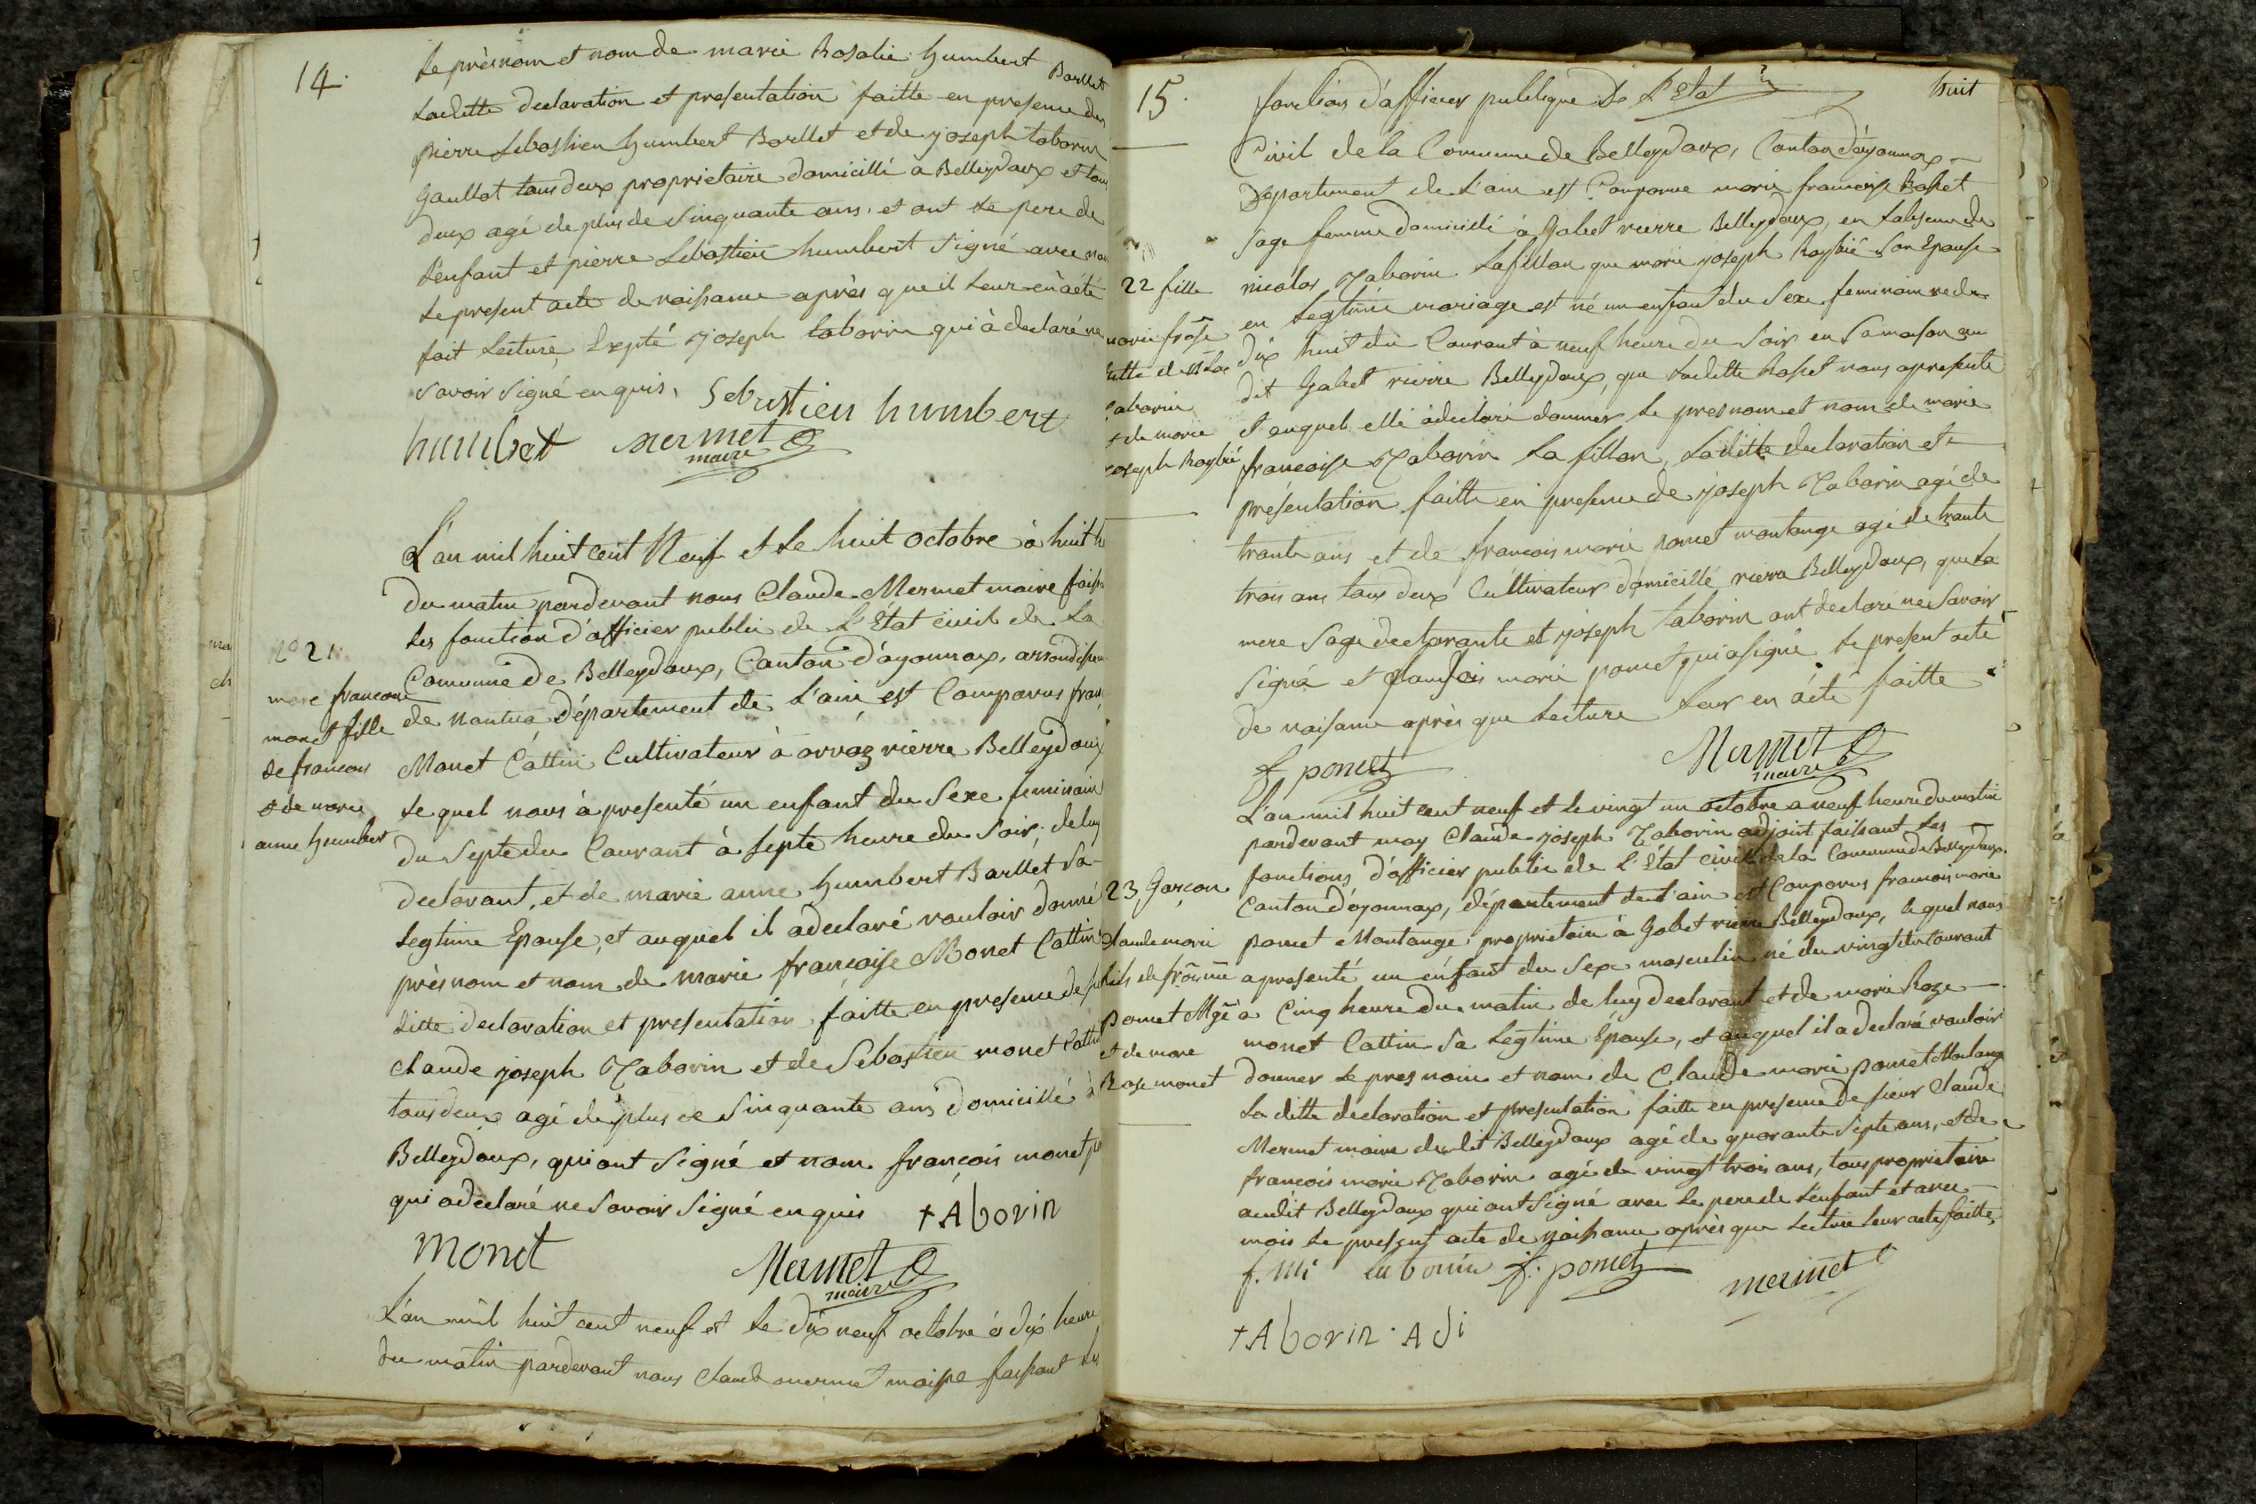 14.
Le prèsnom et nom de marie Rosalie humbert Barllet
Laditte declaration et presentation faitte en presence de
pierre Sebastien humbert Barllet et de joseph taborin
Gaullat tous deux proprietaire domicillé a Belleydoux et tous
deux agé de plus de Sinquante ans. et ont le pere de
L'enfant et pierre Sebastien humbert Signé avec nous
Le present acte de naissance après que il leur en à été
fait lecture, Exepté joseph taborin qui à declaré ne
savoir Signé enquis.
Sebastien humbert
humbert mermet
maire
L'an mil huit cent Neuf et le huit octobre à huit h
Du matin pardevant nous Claude Mermet maire fais
Les fonction d'officier public de L'Etat civil de La
Comunne de Belleydoux, Canton d'oyonnax, arrondisse
de nantua département de L'ain est Comparus fran
Monet Cattin Cultivateur à orvaz rierre Belleydoux
Le quel nous à presenté un enfant du Sexe feminain
Du Septe du Courant à septe heure du Soir, de luy
declarant, et de marie anne humbert Barllet Sa
Legtime Epouse, et auquel il a declaré vouloir donné
prèsnom et nom de marie françoise Monet Cattin
ditte declaration et presentation faitte en presence de
claude joseph Taborin et de Sebastien monet Cattin
tous deux agé de plus de Sinquante ans domicillé à
Belleydoux, qui ont Signé et nom françois monet
qui a declaré ne Savoir Signé enquis
tAborin
monet
Mermet
maire
L'an mil huit cent neuf et le dix neuf octobre à dix heure
du matin pardevant nous Claude mermet maire faisant les
n° 21.
marie françoise
monet fille
de francois
et de marie
anne humbert
15.
huit
fonctions d'afficier publique De L'Etat
Civil de la Comunne de Belleydoux, Canton d'oyonnax
Département de L'ain est Comparue marie francoise Rosset
Sage femme domicilié à Gobet rierre Belleydoux, en L'absence de
nicolas Taborin Lafillon que marie joseph Roybié Son Epouse
en Legtime mariage est né un enfant du Sexe feminain
dix huit du Courant à neuf heure du Soir en Samaison au
dit Gobet rierre Belleydoux, que Laditte Rosset nous apresenté
et auquel elle à declaré donner le presnom et nom de marie
francoise Taborin La fillon, Laditte declaration et
présentation faitte en presence de joseph Taborin agé de
trante ans et de francois marie pomet montange agé de trante
trois ans tous deux Cultivateur domicillé rierre Belleydoux, que La
mere Sage declarante et joseph taborin ont declaré ne Savoir
Signé et francois marie pomet qui a signé le present acte
de naisance après que Lecture leur en à été faitte
f pomet
Mermet
maire
22 fille
marie frôse
taborin
et de marie
joseph Roybié
L'an mil huit cent neuf et le vingt un octobre a neuf heure du matin
pardevant moy Claude joseph Taborin adjoint faisant Les
fonctions d'officier public de L'Etat civil de la Commune de Belleydoux
Canton d'oyonnax, département de L'ain est Comparus francois marie
pomet Montange, proprietaire à Gobet rierre Belleydoux, le quel nous
a presenté un enfant du Sexe masculin né du vingt du Courant
à Cinq heure du matin de luy declarant et de marie Roze
monet Cattin Sa Legtime Epouse, et auquel il a declaré vouloir
donner le presnom et nom de Claude marie pomet Montange
La ditte declaration et presentation faitte en presence de sieur Claude
Mermet maire dudit Belleydoux agé de quarante Septe ans, et de
francois marie Taborin agé de vingt trois ans, tous proprietaire
audit Belleydoux qui ont Signé avec Le pere de L'enfant et avec
mois Le present acte de naissance après que Lecture leur a été faitte
f. mi taborin f. pomet
mermet
tAborin. Adi
23, Garçon
Claude marie
fils de frôis mie
Pomet Mge
et de marie
Roze monet